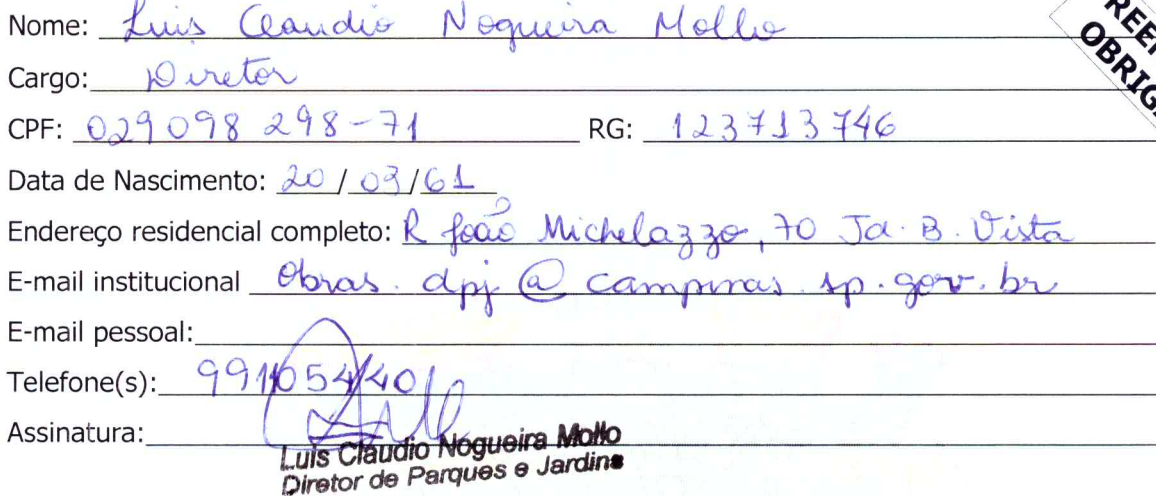 Nome: Luis Claudio Nogueira Mollo
Cargo: Diretor
CPF: 029 098 298-71 RG: 123713746
Data de Nascimento: 20/03/61
Endereço residencial completo: R João Michelazzo, 70 Jd. B. Vista
E-mail institucional Obras.dpj@campinas.sp.gov.br
E-mail pessoal:
Telefone(s):
Assinatura:
Luis Cláudio Nogueira Mollo
Diretor de Parques e Jardins